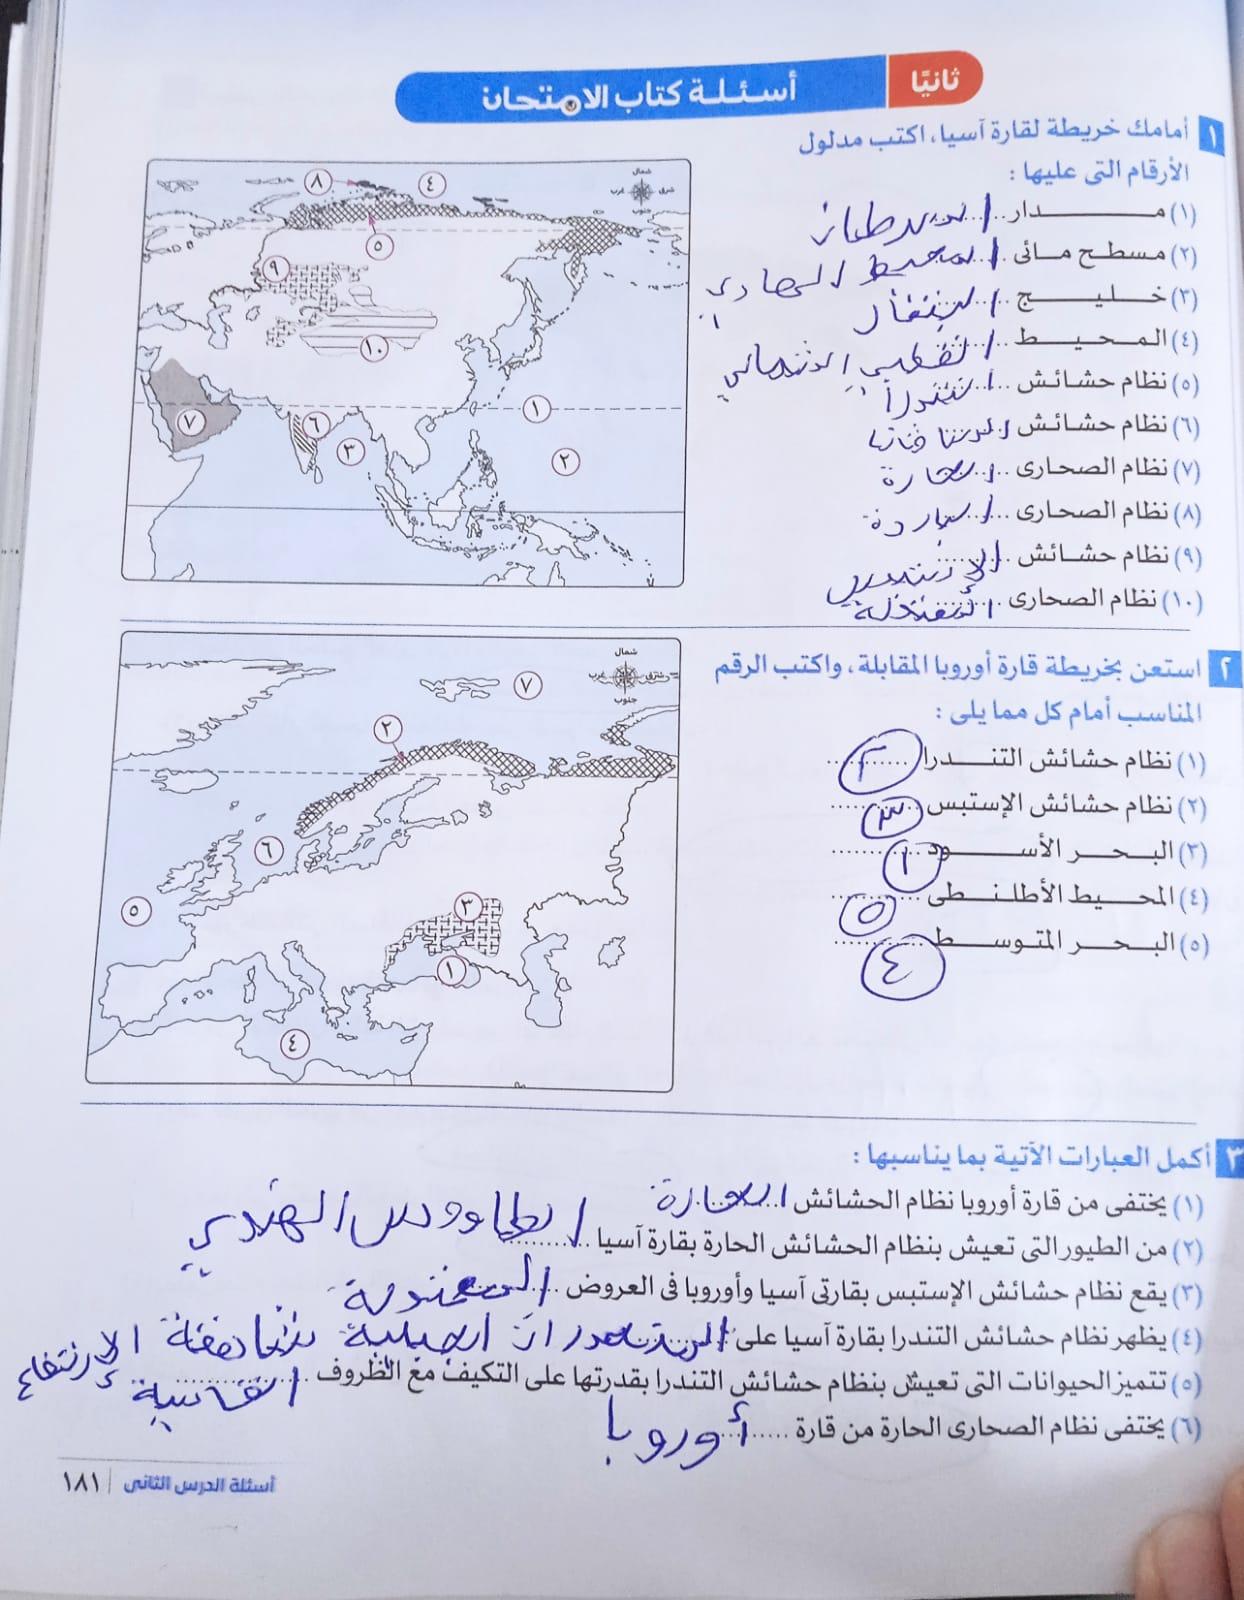 ثانيًا أسئلة كتاب الامتحان
١ أمامك خريطة لقارة آسيا، اكتب مدلول
الأرقام التى عليها :
(١) مدار السرطان
(٢) مسطح مائى المحيط الهادي
(٣) خليج البنغال
(٤) المحيط القطبي الشمالي
(٥) نظام حشائش التندرا
(٦) نظام حشائش السافانا
(٧) نظام الصحارى الحارة
(٨) نظام الصحارى الباردة
(٩) نظام حشائش الإستبس
(١٠) نظام الصحارى المعتدلة
شمال
شرق غرب
جنوب
٨ ٤
٥
٩
١٠
٧ ٦ ٣ ١
٢
٢ استعن بخريطة قارة أوروبا المقابلة، واكتب الرقم
المناسب أمام كل مما يلى :
(١) نظام حشائش التندرا ٢
(٢) نظام حشائش الإستبس ٣
(٣) البحر الأسود ١
(٤) المحيط الأطلنطى ٥
(٥) البحر المتوسط ٤
شمال
شرق غرب
جنوب
٧
٢
٦
٥ ٣
١
٤
٣ أكمل العبارات الآتية بما يناسبها :
(١) يختفى من قارة أوروبا نظام الحشائش الحارة
(٢) من الطيور التى تعيش بنظام الحشائش الحارة بقارة آسيا الطاووس الهندي
(٣) يقع نظام حشائش الإستبس بقارتى آسيا وأوروبا فى العروض المعتدلة
(٤) يظهر نظام حشائش التندرا بقارة آسيا على المنحدرات الجبلية شاهقة الإرتفاع
(٥) تتميز الحيوانات التى تعيش بنظام حشائش التندرا بقدرتها على التكيف مع الظروف القاسية
(٦) يختفى نظام الصحارى الحارة من قارة أوروبا
أسئلة الدرس الثانى | ١٨١